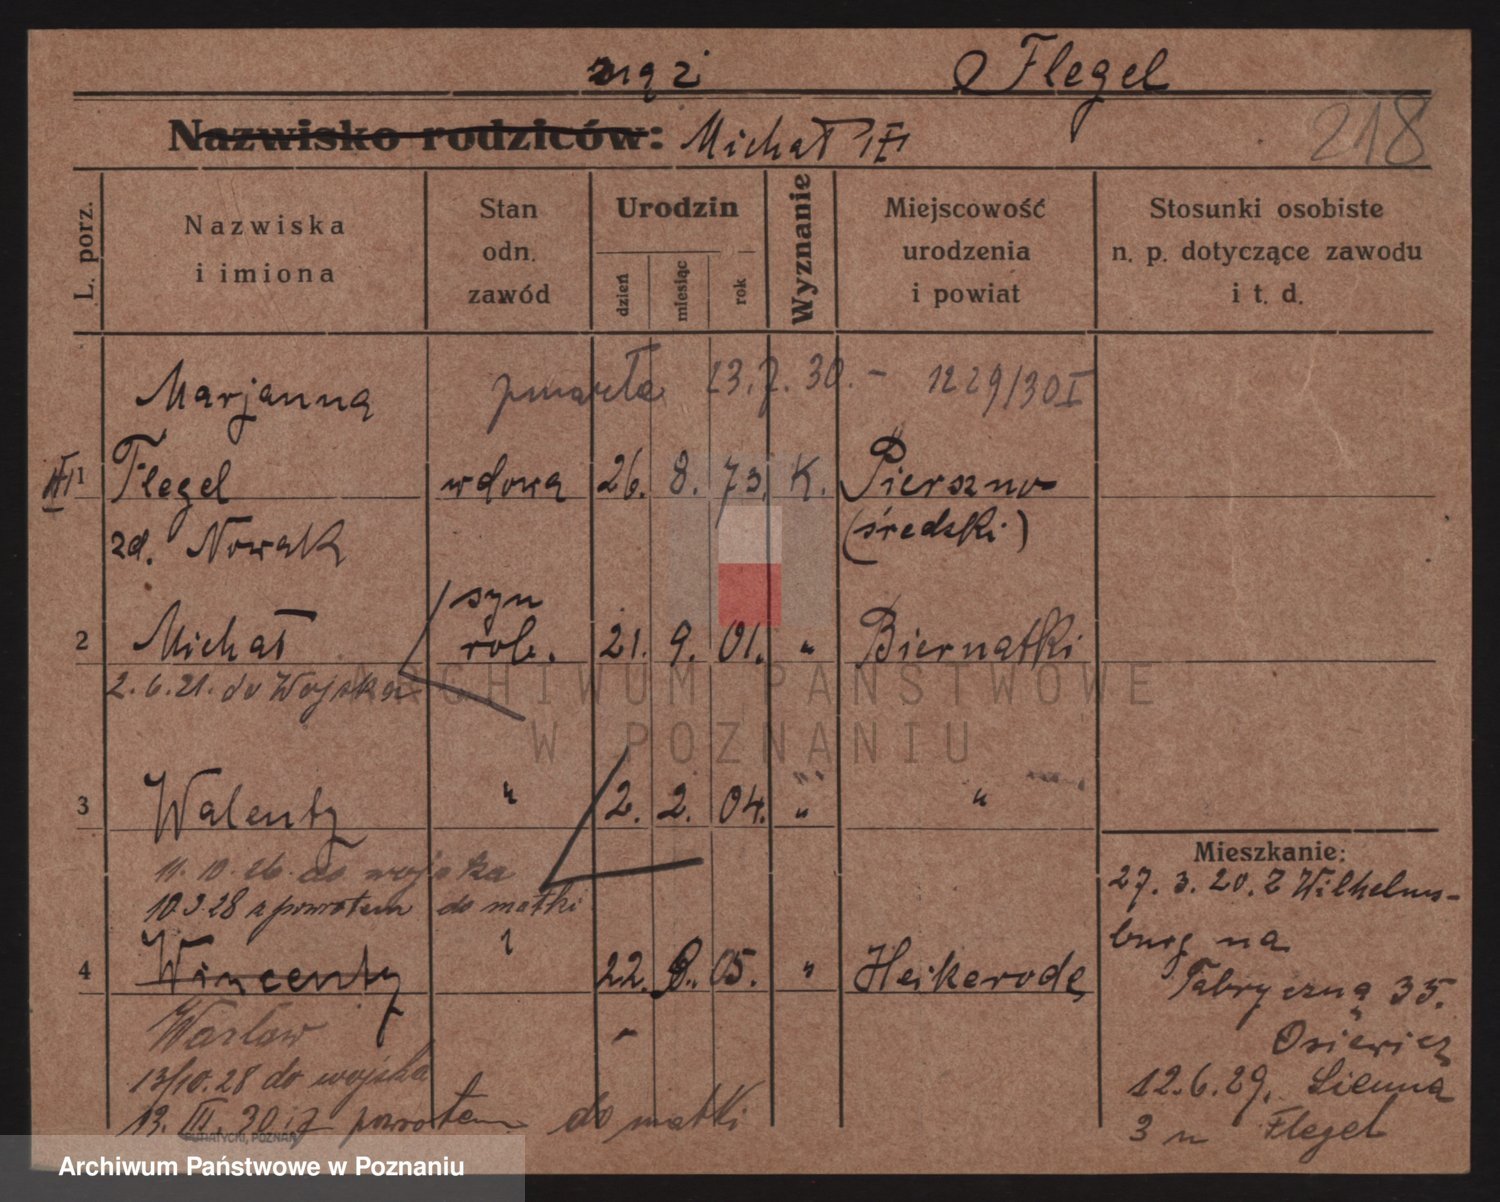 mąż Flegel
Nazwisko rodziców: Michał III
218
L. porz.
Nazwiska i imiona
Stan odn. zawód
Urodzin
dzień miesiąc rok
Wyznanie
Miejscowość urodzenia i powiat
Stosunki osobiste n. p. dotyczące zawodu i t. d.
Marjanna zmarła 13.7.30. - 1229/30 I
III 1 Flegel wdowa 26. 8. 73. K. Pierszno
zd. Nowak (średzki)
syn
2 Michał rob. 21. 9. 01. " Biernatki
2.6.21. do Wojska
3 Walenty " 2. 2. 04. " "
11.10.26. do wojska
10.3.28 z powrotem do matki
4 Wincenty 22. 8. 05. " Heikerode
Wacław
13/10.28 do wojska
13. III. 30 z powrotem do matki
Mieszkanie:
27. 3. 20. Z Wilhelms-
burg na
Fabryczną 35.
Osiewicz
12.6.29. Sienna
3 u Flegel
PUTIATYCKI, POZNAŃ
ARCHIWUM PAŃSTWOWE
W POZNANIU
Archiwum Państwowe w Poznaniu